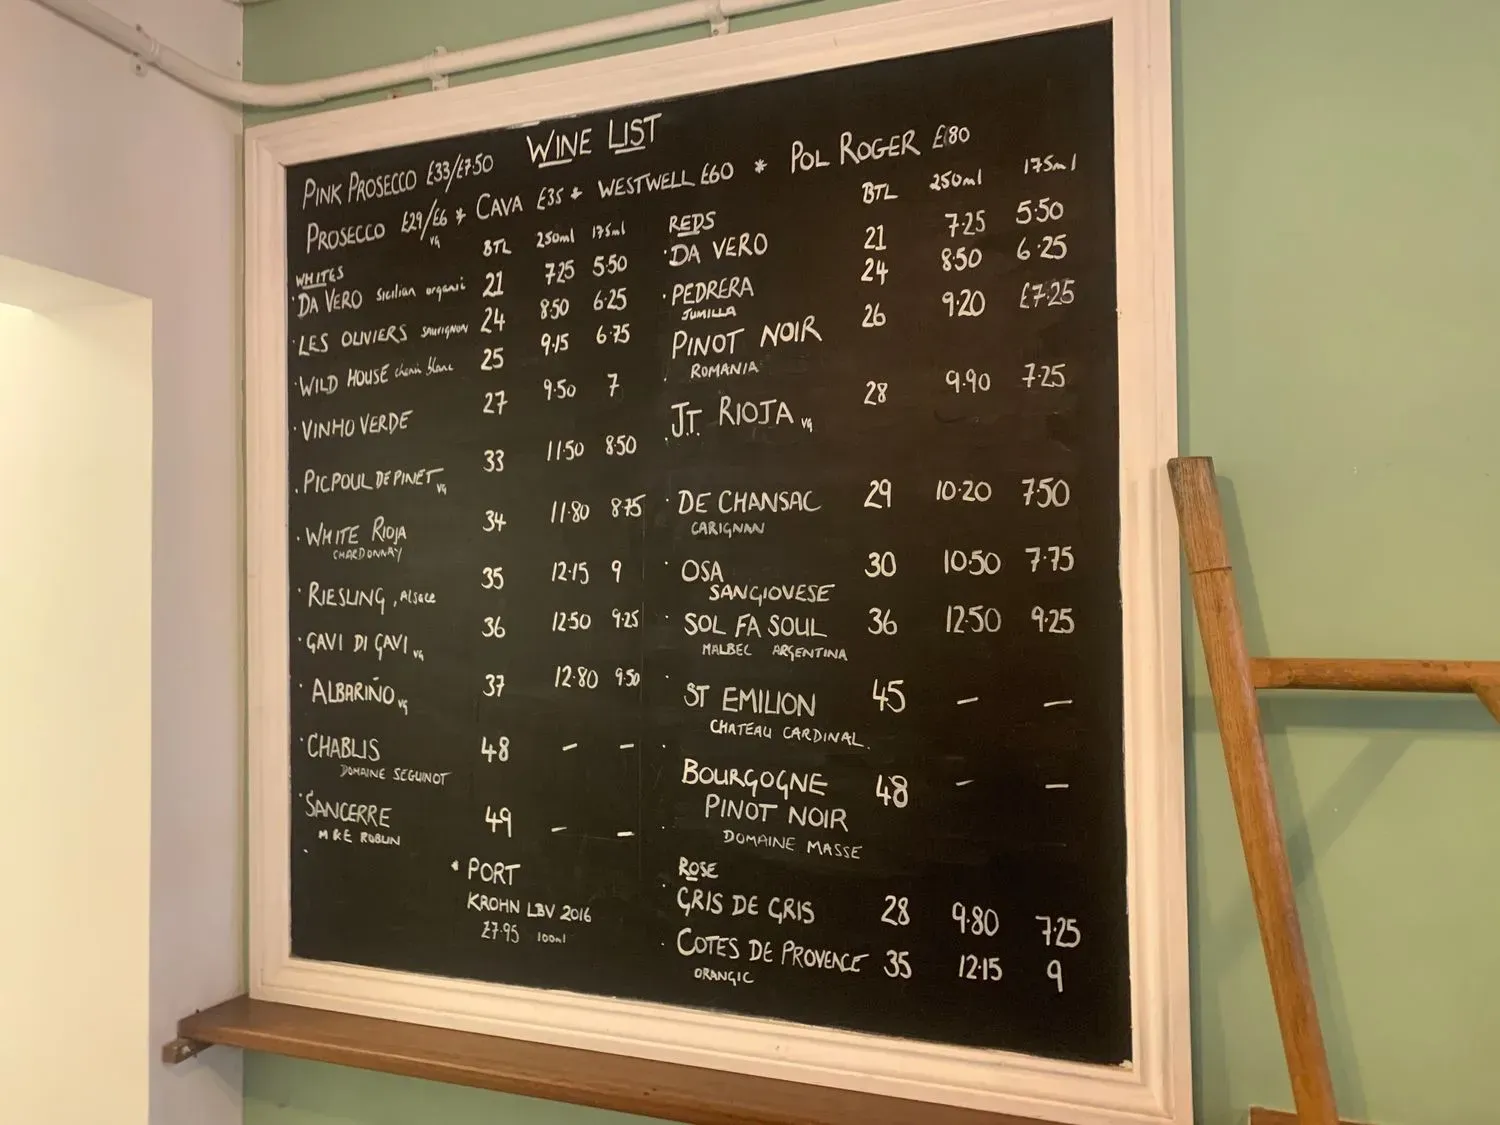 WINE LIST
PINK PROSECCO £33/£7.50
PROSECCO £29/£6 * CAVA £35 * WESTWELL £60 * POL ROGER £80
vg
BTL 250ml 175ml
WHITES
· DA VERO Sicilian organic 21 7.25 5.50
· LES OLIVIERS sauvignon 24 8.50 6.25
· WILD HOUSE chenin blanc 25 9.15 6.75
· VINHO VERDE 27 9.50 7
· PICPOUL DE PINET vg 33 11.50 8.50
· WHITE RIOJA 34 11.80 8.75
CHARDONNAY
· RIESLING, Alsace 35 12.15 9
· GAVI DI GAVI vg 36 12.50 9.25
· ALBARIÑO vg 37 12.80 9.50
· CHABLIS 48 – –
DOMAINE SEGUINOT
· SANCERRE 49 – –
M & E ROBLIN
* PORT
KROHN LBV 2016
£7.95 100ml
BTL 250ml 175ml
REDS
· DA VERO 21 7.25 5.50
· PEDRERA 24 8.50 6.25
JUMILLA
PINOT NOIR 26 9.20 £7.25
ROMANIA
J.T. RIOJA vg 28 9.90 7.25
· DE CHANSAC 29 10.20 7.50
CARIGNAN
· OSA 30 10.50 7.75
SANGIOVESE
· SOL FA SOUL 36 12.50 9.25
MALBEC ARGENTINA
· ST EMILION 45 – –
CHATEAU CARDINAL.
· BOURGOGNE 48 – –
PINOT NOIR
DOMAINE MASSE
ROSE
· GRIS DE GRIS 28 9.80 7.25
· COTES DE PROVENCE 35 12.15 9
ORANGIC